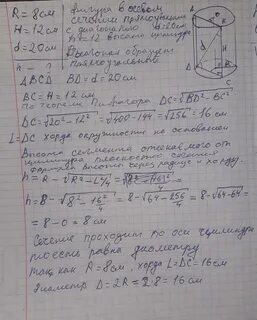 R = 8см фигура в осевом
H = 12см сечении прямоугольник
d = 20см с диагональю d=20см
h=12 высота цилиндра
h - ? Диагональ образует
прямоугольный
ABCD BD = d = 20см
BC = H = 12см
По теореме Пифагора DC = √BD² - BC²
DC = √20² - 12² = √400 - 144 = √256 = 16 см
L = DC хорда окружности на основании
Высота сегмента отсекаемого от
цилиндра плоскостью сечения
формула высоты через радиус и хорду
h = R - √R² - L²/4
h = 8 - √8² - 16²/4 = 8 - √64 - 256/4 = 8 - √64 - 64 =
= 8 - 0 = 8 см
Сечение проходит по оси цилиндра
то есть равна диаметру
так как R = 8см, хорда L = DC = 16см
диаметр D = 2R = 2·8 = 16 см